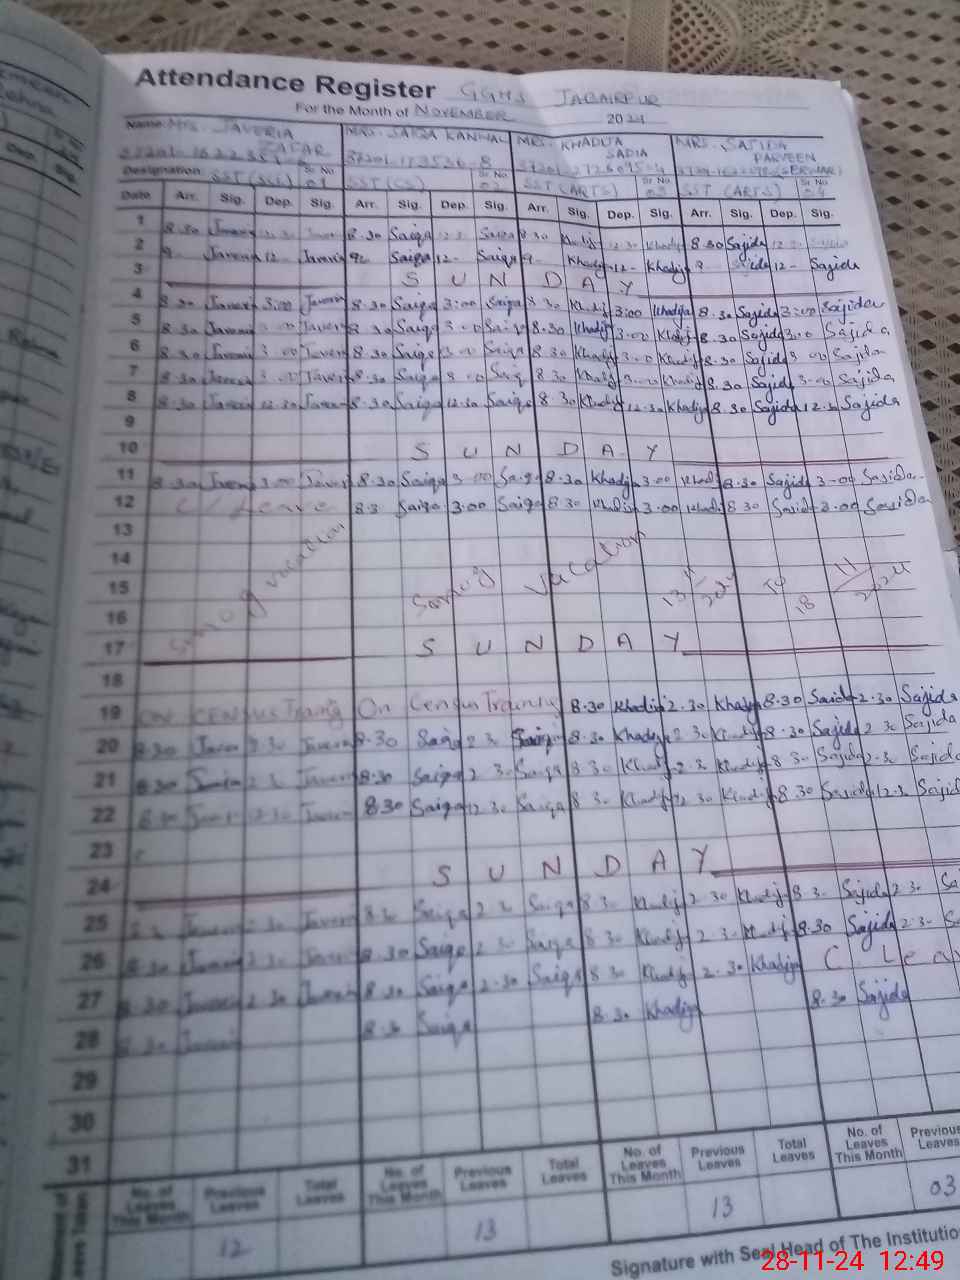 Attendance Register GGHS JABAIRPUR
For the Month of NOVEMBER 2024
Name MRS. JAVERIA ZAFAR MRS. SAIQA KANWAL MRS. KHADIJA SADIA MRS. SAJIDA PARVEEN
Designation SST (SCI) Sr. No 01 SST (CS) Sr. No 02 SST (ARTS) Sr. No 03 SST (ARTS) Sr. No 04
Date Arr. Sig. Dep. Sig. Arr. Sig. Dep. Sig. Arr. Sig. Dep. Sig. Arr. Sig. Dep. Sig.
1 8.30 Javeria 8.30 Saiqa Saiqa 8.30 Khadij 12.30 Khadij 8.30 Sajida
2 9 Javeria 12 Javeria Saiqa 12- Saiqa 9- Khadij 12- Khadija 9 Sajida 12- Sajida
3 S U N D A Y
4 8.30 Javeri 3:00 Javeri 8.30 Saiqa 3:00 Saiqa 8.30 Khadij 3:00 Khadija 8.30 Sajida 3:00 Sajida
5 8.30 Javeri 3.00 Javeri 8.30 Saiqa 3.00 Saiqa 8.30 Khadij 3.00 Khadij 8.30 Sajida 3.00 Sajida
6 8.30 Javeri 3.00 Javeri 8.30 Saiqa 3.00 Saiqa 8.30 Khadij 3.00 Khadij 8.30 Sajida 3.00 Sajida
7 8.30 Javeri 3.00 Javeri 8.30 Saiqa 3.00 Saiq 8.30 Khadij 3.00 Khadij 8.30 Sajida 3.00 Sajida
8 8.30 Javeri 12.30 Javeri 8.30 Saiqa 12.30 Saiqa 8.30 Khadij 12.30 Khadija 8.30 Sajida 12.30 Sajida
9
10 S U N D A Y
11 8.30 Javeri 3.00 Javeri 8.30 Saiqa 3.00 Saiqa 8.30 Khadija 3.00 Khadij 8.30 Sajida 3.00 Sajida
12 C/Leave 8.3 Saiqa 3.00 Saiqa 8.30 Khadija 3.00 Khadij 8.30 Sajid 3.00 Sajida
13
14
15 Smog vacation Smog vacation 13 2024 To 18 11 2024
16
17 S U N D A Y
18
19 On Census Training On Census Training 8.30 Khadija 2.30 Khadija 8.30 Sajida 2.30 Sajida
20 8.30 Javeri 2.30 Javeri 8.30 Saiqa 2.30 Saiqa 8.30 Khadija 2.30 Khadij 8.30 Sajida 2.30 Sajida
21 8.30 Javeria 2.30 Javeri 8.30 Saiqa 2.30 Saiqa 8.30 Khadij 2.30 Khadij 8.30 Sajida 2.30 Sajida
22 8.30 12.30 Javeri 8.30 Saiqa 12.30 Saiqa 8.30 Khadij 12.30 Khadij 8.30 Sajida 12.30 Sajida
23
24 S U N D A Y
25 Javeri Javeri 8.30 Saiqa 2.30 Saiqa 8.30 Khadij 2.30 Khadij 8.30 Sajida 2.30
26 8.30 Javeri 2.30 8.30 Saiqa 2.30 Saiqa 8.30 Khadij 2.30 Khadij 8.30 Sajida 2.30
27 8.30 Javeri 2.30 Javeri 8.30 Saiqa 2.30 Saiqa 8.30 Khadija 2.30 Khadija C Leav
28 8.30 Javeri 8.30 Saiqa 8.30 Khadija 8.30 Sajida
29
30
31
No. of Leaves This Month Previous Leaves Total Leaves No. of Leaves This Month Previous Leaves Total Leaves No. of Leaves This Month Previous Leaves Total Leaves No. of Leaves This Month Previous Leaves
12 13 13 03
Signature with Seal Head of The Institutio
28-11-24 12:49